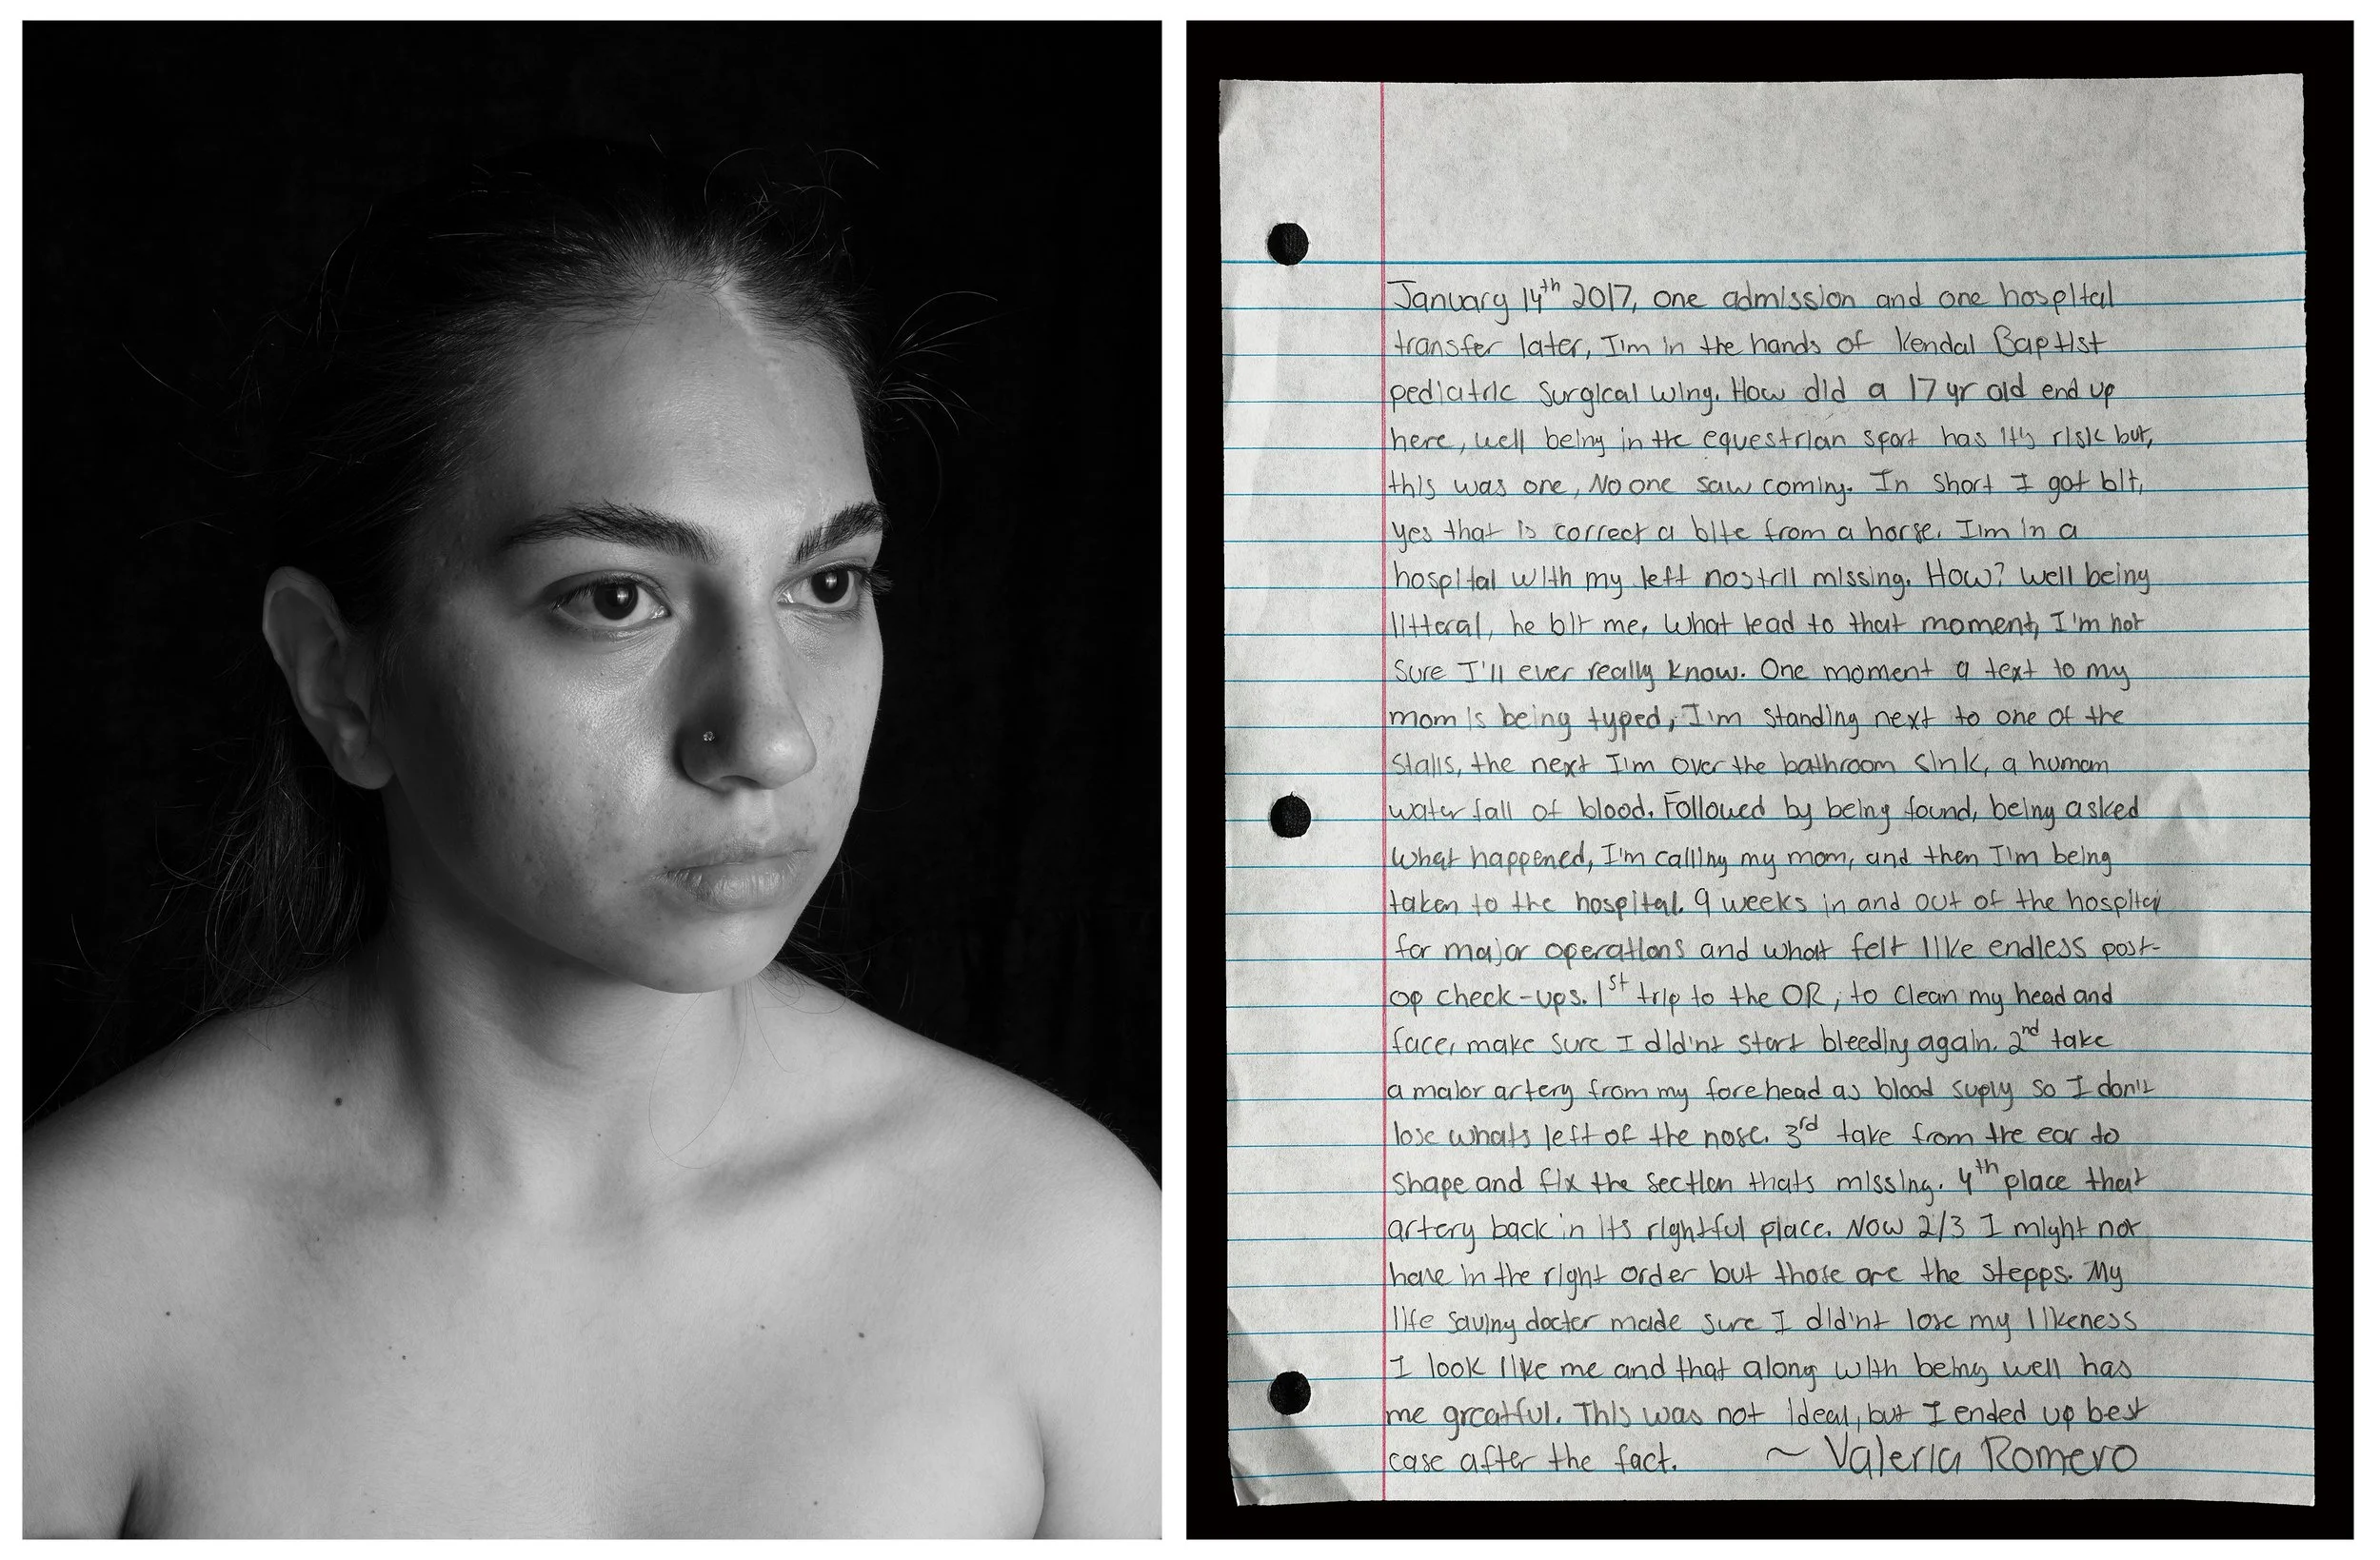 January 14th 2017, one admission and one hospital
transfer later, I'm in the hands of Kendal Baptist
pediatric surgical wing. How did a 17 yr old end up
here, well being in the equestrian sport has it's risk but,
this was one, No one saw coming. In short I got bit,
yes that is correct a bite from a horse. I'm in a
hospital with my left nostril missing. How? Well being
litteral, he bit me. What lead to that moment, I'm not
sure I'll ever really know. One moment a text to my
mom is being typed, I'm standing next to one of the
stalls, the next I'm over the bathroom sink, a human
water fall of blood. Followed by being found, being asked
what happened, I'm calling my mom, and then I'm being
taken to the hospital. 9 weeks in and out of the hospital
for major operations and what felt like endless post-
op check-ups. 1st trip to the OR, to clean my head and
face, make sure I did'nt start bleeding again. 2nd take
a major artery from my forehead as blood suply so I don't
lose whats left of the nose. 3rd take from the ear to
shape and fix the section thats missing. 4th place that
artery back in its rightful place. Now 2/3 I might not
have in the right order but those are the stepps. My
life saving doctor made sure I did'nt lose my likeness
I look like me and that along with being well has
me greatful. This was not ideal, but I ended up best
case after the fact. ~ Valeria Romero